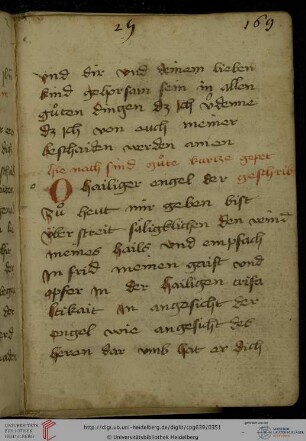 24 169
vnd dir vnd deinem lieben
kind gehorsam sein in allen
guͦten dingen dz ich
dz ich von euch meiner
bescheiden werden amen
hie nach sind guͦte kurtze gepet
O hailiger engel der geschrib
zuͦ heut mir geben bist
streit säligklichen den veind
meines hails vnd empfach
In frid meinen gaist vnd
opfer in der hailigen
In angesicht der
engel wie angesicht des
heren dar vmb hat er dich
UNIVERSITÄTS-
BIBLIOTHEK
HEIDELBERG
http://digi.ub.uni-heidelberg.de/diglit/cpg639/0351
© Universitätsbibliothek Heidelberg